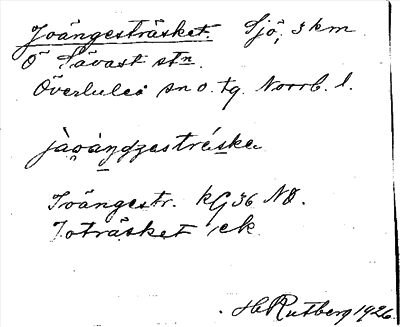 Joängesträsket. Sjö, 3 km
Ö Sävast stn.
Överluleå sn o. tg. Norrb. l.
jòǫáŋgzestréske
Ivängestr. kG 36 NO.
Joträsket, ek
H Rutberg 1926.